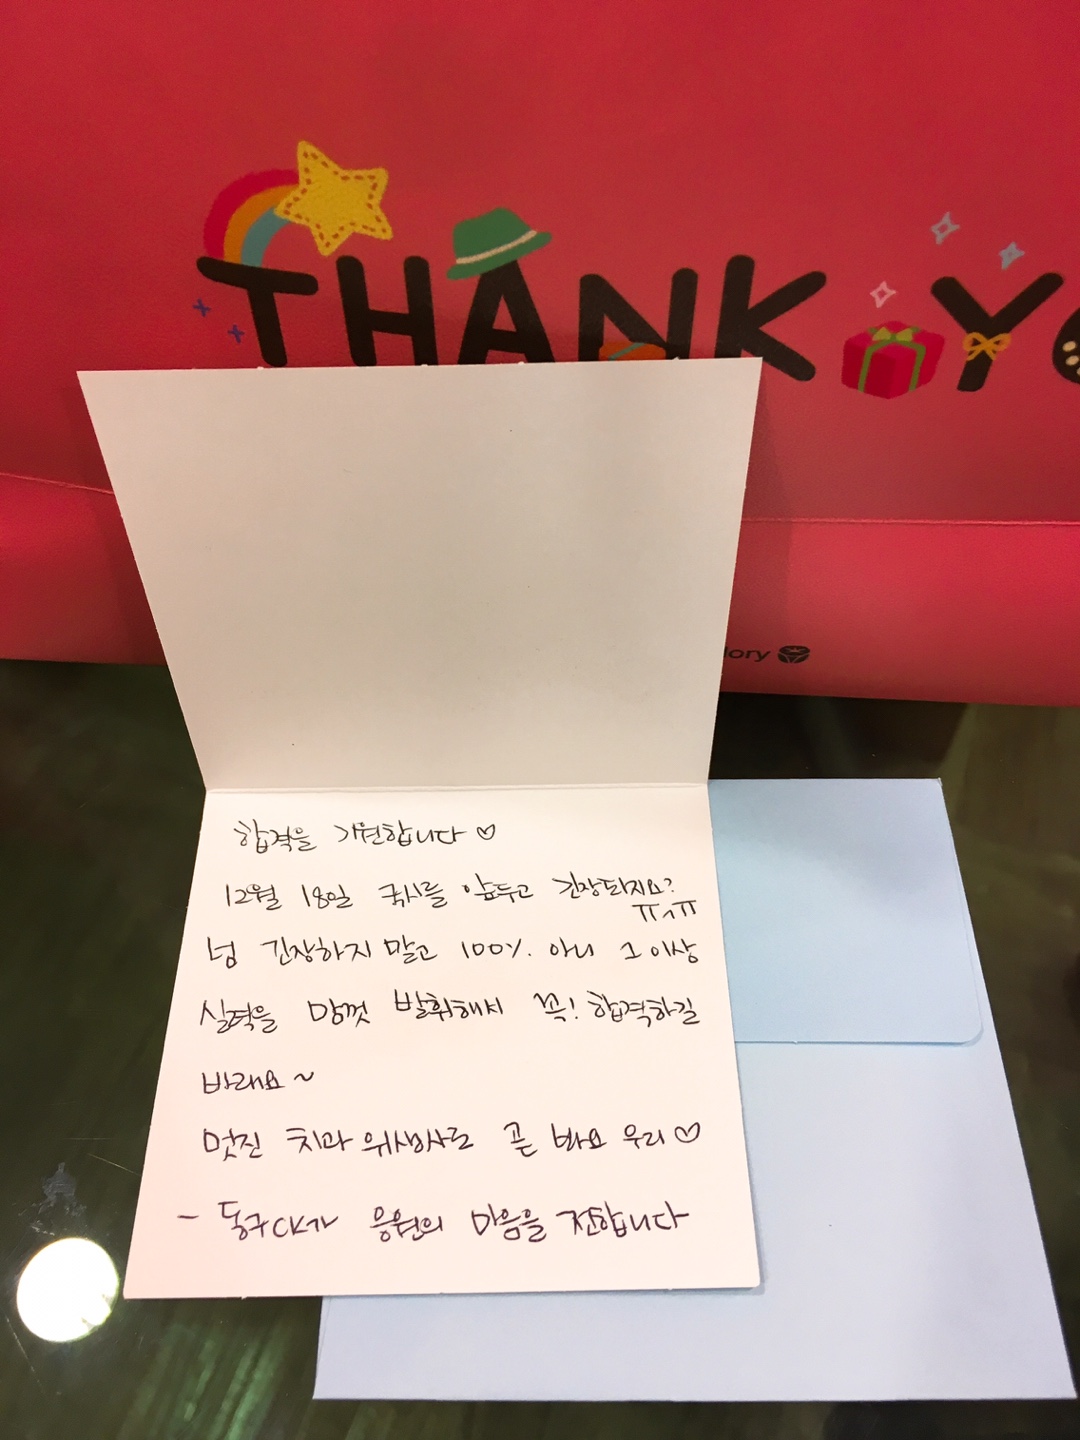 THANK YO
lory
합격을 기원합니다 ♡
12월 18일 국시를 앞두고 긴장되지요?
ㅠㅅㅠ
넘 긴장하지 말고 100%. 아니 그 이상
실력을 맘껏 발휘해서 꼭! 합격하길
바래요~
멋진 치과위생사로 곧 봐요 우리♡
- 동구CK가 응원의 마음을 전합니다